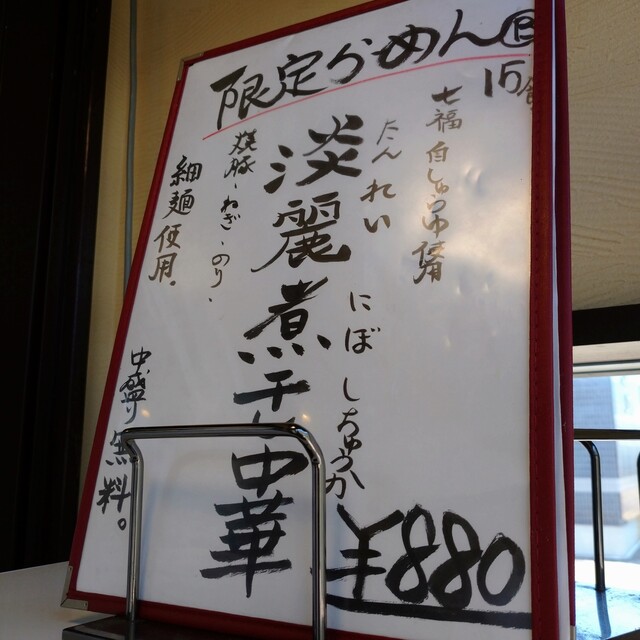 限定らーめん
日
15食
七福白しょうゆ使用
たんれい
にぼしちゅうか
淡麗煮干中華
焼豚、ねぎ、のり、
細麺使用。
中盛り無料。
¥880